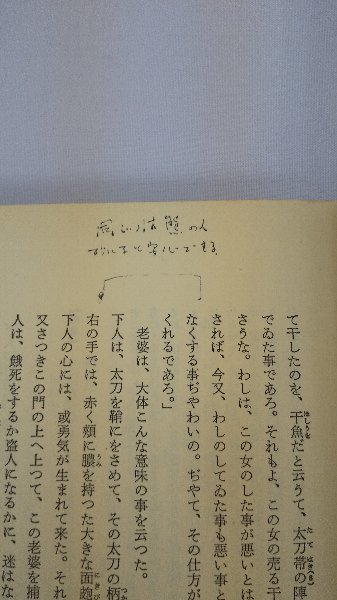 状態の人
安心できる
て干したのを、干魚だと云うて、太刀帯の陣
でゐた事であろ。それもよ、この女の売る干
さうな。わしは、この女のした事が悪いとは
されば、今又、わしのしてゐた事も悪い事と
なくする事ぢやわいの。ぢやて、その仕方が
くれるであろ。」
老婆は、大体こんな意味の事を云つた。
下人は、太刀を鞘にをさめて、その太刀の柄
右の手では、赤く頬に膿を持つた大きな面皰
下人の心には、或勇気が生まれて来た。それ
又さつきこの門の上へ上つて、この老婆を捕
人は、餓死をするか盗人になるかに、迷はな